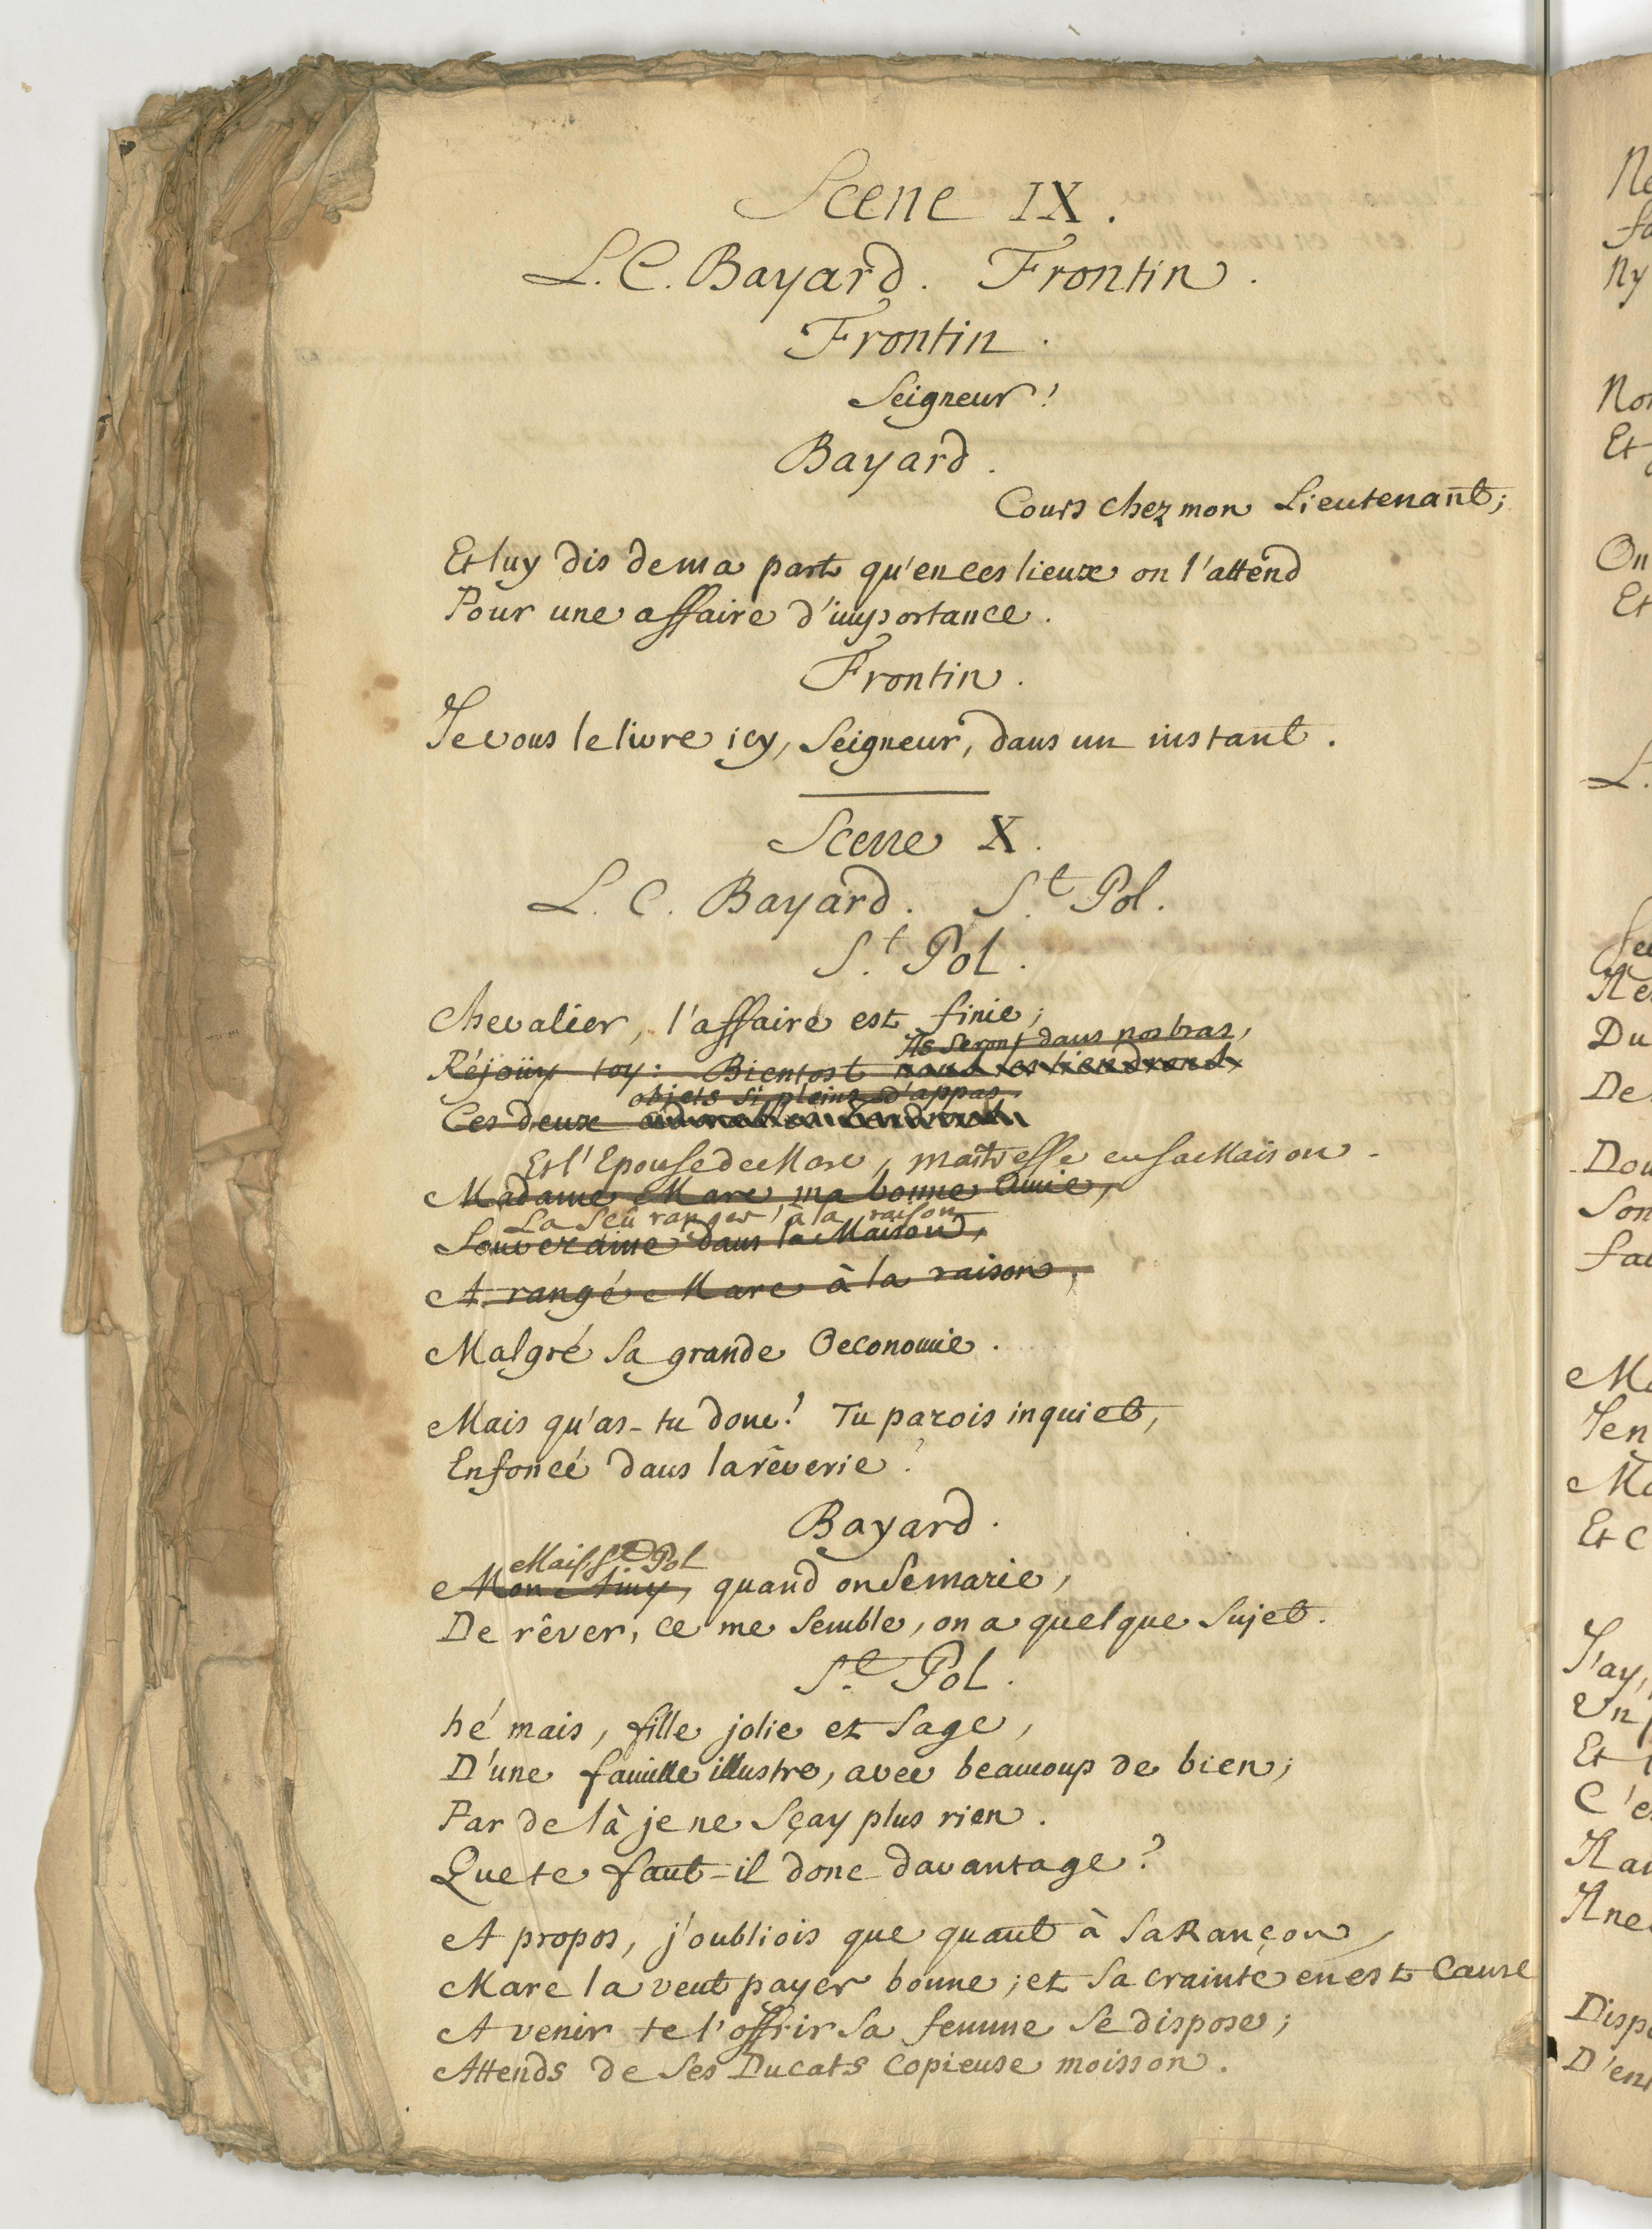 Scene IX.
L. C. Bayard. Frontin.
Frontin.
Seigneur!
Bayard.
Cours chez mon Lieutenant;
Et luy dis de ma part qu'en ces lieux on l'attend
Pour une affaire d'importance.
Frontin.
Je vous le livre icy, Seigneur, dans un instant.
Scene X.
L. C. Bayard. S.t Pol.
S.t Pol.
Chevalier, l'affaire est finie;
Ils seront dans nos bras,
Réjoüy toy: Bientost nous les tiendrons
objets si pleins d'appas
Ces deux
Et l'Epouse de Marc, maitresse en sa Maison
Madame Marc, ma bonne Amie,
La sçû ranger à la raison
Souveraine dans la Maison,
A rangé Marc à la raison,
Malgré Sa grande Oeconomie.
Mais qu'as-tu donc! Tu parois inquiet,
Enfoncé dans la rêverie?
Bayard.
Mais, S.t Pol
Mon Amy, quand on Se marie,
De rêver, ce me Semble, on a quelque Sujet.
S.t Pol.
hé mais, fille jolie et Sage,
D'une famille illustre, avec beaucoup de bien;
Par de là je ne Sçay plus rien.
Que te faut-il donc davantage?
A propos, j'oubliois que quant à Sa Rançon,
Marc la veut payer bonne; et Sa crainte en est Cause
A venir te l'offrir Sa femme Se dispose;
Attends de Ses Ducats Copieuse moisson.